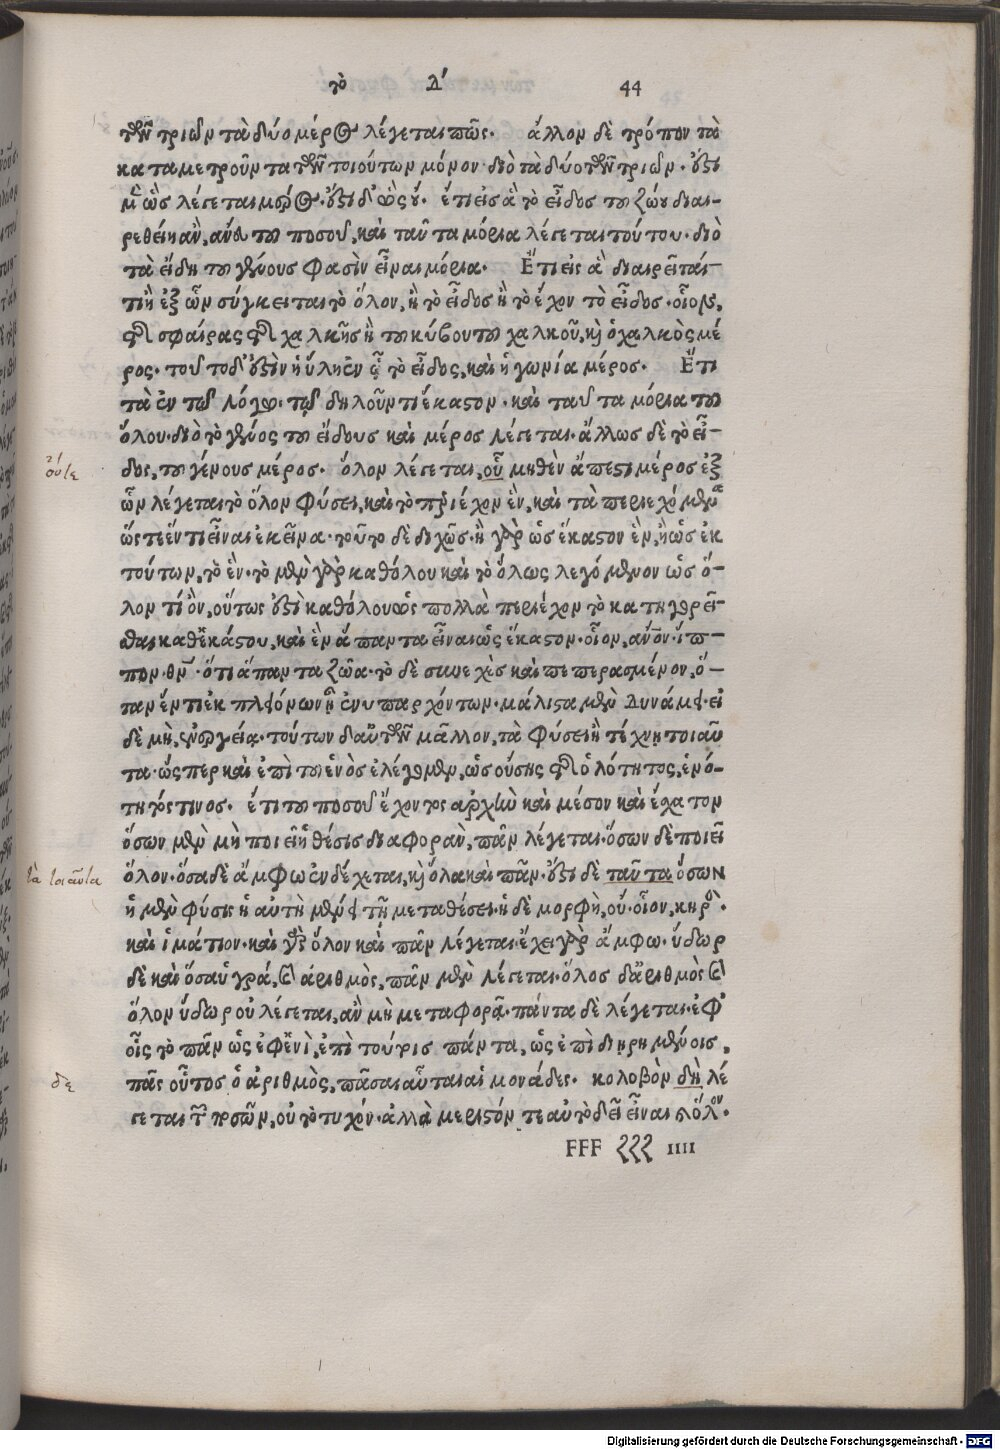 τὸ Δ' 44
τῶν τριῶν τὰ δύο μέρος λέγεταί πως. ἄλλον δὲ τρόπον τὰ
καταμετροῦντα τῶν τοιούτων μόνον· διὸ τὰ δύο τῶν τριῶν· ἔστι
μὲν ὡς λέγεται μέρος· ἔστι δ' ὡς οὔ. ἔτι εἰς ἃ τὸ εἶδος τοῦ ζώου διαι-
ρεθείη ἂν, ἄνευ τοῦ ποσοῦ, καὶ ταῦτα μόρια λέγεται τούτου· διὸ
τὰ εἴδη τοῦ γένους φασὶν εἶναι μόρια. Ἔτι εἰς ἃ διαιρεῖταί
τι ἢ ἐξ ὧν σύγκειται τὸ ὅλον, ἢ τὸ εἶδος ἢ τὸ ἔχον τὸ εἶδος· οἷον,
τῆς σφαίρας τῆς χαλκῆς ἢ τοῦ κύβου τοῦ χαλκοῦ, καὶ ὁ χαλκὸς μέ
ρος· τοῦτο δ' ἐστὶν ἡ ὕλη ἐν ᾧ τὸ εἶδος, καὶ ἡ γωνία μέρος. Ἔτι
τὰ ἐν τῷ λόγῳ τῷ δηλοῦντι ἕκαστον· καὶ ταῦτα μόρια τοῦ
ὅλου· διὸ τὸ γένος τοῦ εἴδους καὶ μέρος λέγεται· ἄλλως δὲ τὸ εἶ-
δος, τοῦ γένους μέρος. ὅλον λέγεται, οὗ μηθὲν ἄπεστι μέρος ἐξ
οὗτε
ὧν λέγεται τὸ ὅλον φύσει, καὶ τὸ περιέχον ἓν, καὶ τὰ περιεχόμενα
ὥστε ἕν τι εἶναι ἐκεῖνα· τοῦτο δὲ διχῶς· ἢ γὰρ ὡς ἕκαστον ἓν, ἢ ὡς ἐκ
τούτων, τὸ ἓν· τὸ μὲν γὰρ καθόλου καὶ τὸ ὅλως λεγόμενον ὡς ὅ-
λον τὶ ὂν, οὕτως ἐστὶ καθόλου ὡς πολλὰ περιέχον τῷ κατηγορεῖ-
σθαι καθ' ἑκάστου, καὶ ἓν ἅπαντα εἶναι ὡς ἕκαστον· οἷον, ἄνον· ἵπ-
πον· θν· ὅτι ἅπαντα ζῶα· τὸ δὲ συνεχὲς καὶ πεπερασμένον, ὅ-
ταν ἕν τι ἐκ πλειόνων ᾖ ἐνυπαρχόντων· μάλιστα μὲν δυνάμει· εἰ
δὲ μὴ, ἐνεργείᾳ· τούτων δ' αὐτῶν μᾶλλον, τὰ φύσει ἢ τέχνῃ τοιαῦ
τα· ὥσπερ καὶ ἐπὶ τοῦ ἑνὸς ἐλέγομεν, ὡς οὔσης τῆς ὁλότητος, ἑνό-
τητός τινος. ἔτι τοῦ ποσοῦ ἔχοντος ἀρχὴν καὶ μέσον καὶ ἔσχατον
ὅσων μὲν μὴ ποιεῖ ἡ θέσις διαφορὰν, πᾶν λέγεται· ὅσων δὲ ποιεῖ
ὅλον· ὅσα δὲ ἄμφω ἐνδέχεται, καὶ ὅλα καὶ πᾶν· ἔστι δὲ ταῦτα ὅσων
τὰ τοιαῦτα
ἡ μὲν φύσις ἡ αὐτὴ μένει τῇ μεταθέσει· ἡ δὲ μορφὴ, οὔ· οἷον, κηρός.
καὶ ἱμάτιον· καὶ γὰρ ὅλον καὶ πᾶν λέγεται· ἔχει γὰρ ἄμφω· ὕδωρ
δὲ καὶ ὅσα ὑγρὰ, καὶ ἀριθμὸς, πᾶν μὲν λέγεται· ὅλος δ' ἀριθμὸς καὶ
ὅλον ὕδωρ οὐ λέγεται, ἂν μὴ μεταφορᾷ· πάντα δὲ λέγεται· ἐφ'
οἷς τὸ πᾶν ὡς ἐφ' ἑνὶ, ἐπὶ τούτοις πάντα, ὡς ἐπὶ διῃρημένοις,
πᾶς οὗτος ὁ ἀριθμὸς, πᾶσαι αὗται αἱ μονάδες. κολοβὸν δὴ λέ
δε
γεται τῶν ποσῶν, οὐ τὸ τυχόν· ἀλλὰ μεριστόν τε αὐτὸ δεῖ εἶναι καὶ ὅλον.
FFF ζζζ IIII
Digitalisierung gefördert durch die Deutsche Forschungsgemeinschaft - DFG